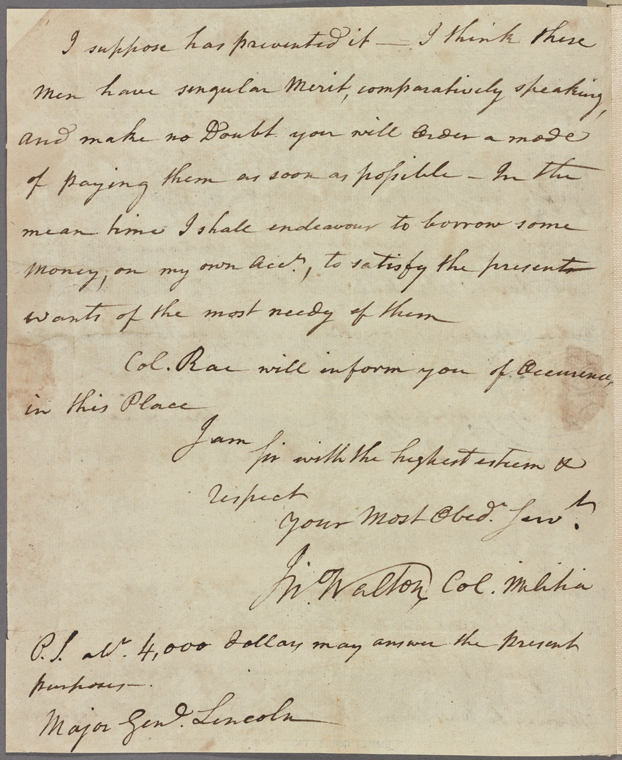 I suppose has prevented it — I think these
men have singular Merit, comparatively speaking,
and make no Doubt you will Order a mode
of paying them as soon as possible – In the
mean time I shall endeavour to borrow some
Money, on my own Acct., to satisfy the present
wants of the most needy of them
Col. Rae will inform you of Occurences
in this Place
I am
Sir with the highest esteem &
respect
Your Most Obedt. Servt.
Jno. Walton, Col. Militia
P.S. abt. 4,000 Dollars may answer the present
purposes –
Major Genl. Lincoln